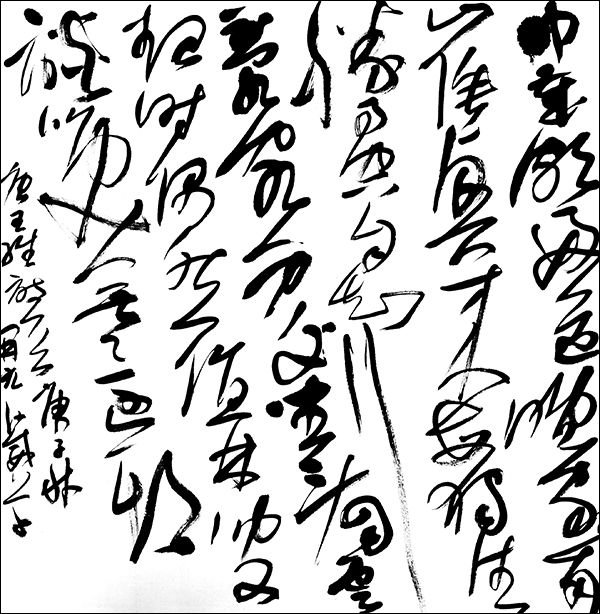 中歲頗好道晚家南
山陲興來每獨往
勝事空自知行
到水窮處坐看雲
起時偶然值林叟
談笑無還期
唐王維詩一首庚子秋